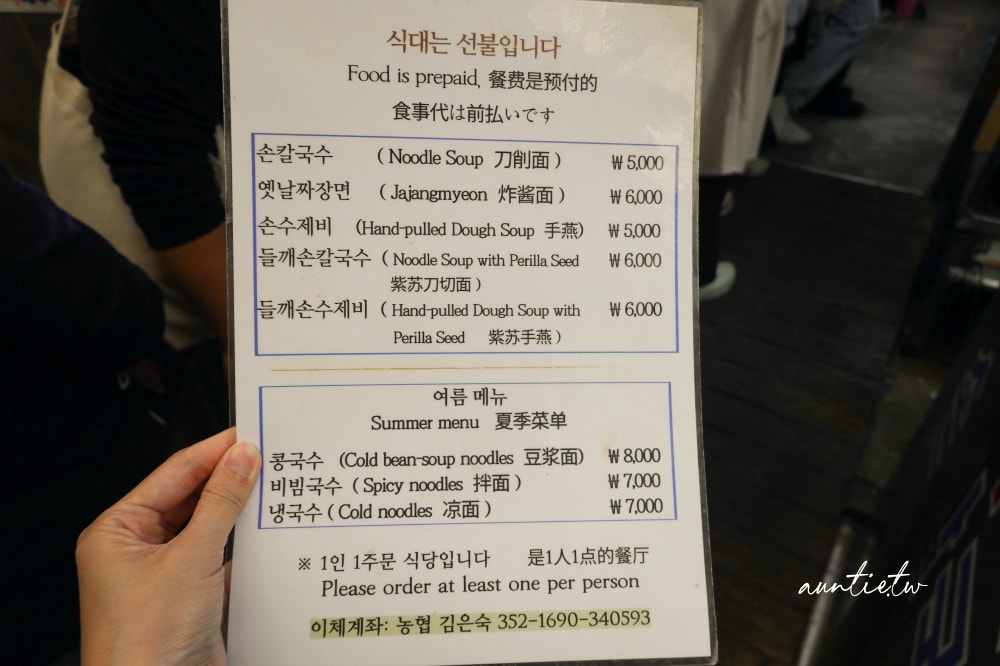 식대는 선불입니다
Food is prepaid, 餐费是预付的
食事代は前払いです
손칼국수 ( Noodle Soup 刀削面 ) ₩ 5,000
옛날짜장면 ( Jajangmyeon 炸酱面 ) ₩ 6,000
손수제비 (Hand-pulled Dough Soup 手燕) ₩ 5,000
들깨손칼국수 ( Noodle Soup with Perilla Seed ₩ 6,000
紫苏刀切面 )
들깨손수제비 ( Hand-pulled Dough Soup with ₩ 6,000
Perilla Seed 紫苏手燕 )
여름 메뉴
Summer menu 夏季菜单
콩국수 (Cold bean-soup noodles 豆浆面) ₩ 8,000
비빔국수 ( Spicy noodles 拌面 ) ₩ 7,000
냉국수 ( Cold noodles 凉面 ) ₩ 7,000
※ 1인 1주문 식당입니다 是1人1点的餐厅
Please order at least one per person
이체계좌: 농협 김은숙 352-1690-340593
auntie.tw